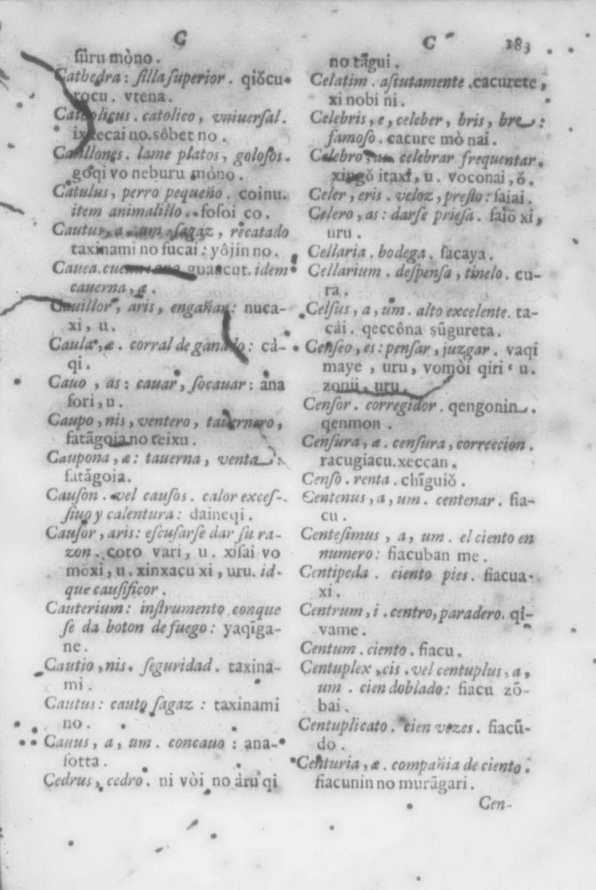 C
ſùru mòno.
Cathedra: ſilla ſuperior. qiòcu
rocu. vtena.
Catholicus. catolico, vniuerſal.
ixecai no. sôbet no.
Catillones. lame platos, goloſos.
goqi vo neburu mòno.
Catulus, perro pequeño. coinu.
item animalillo. foſoi co.
Cautus, a, um. ſagaz, recatado
taxinami no fucai: yôjin no.
Cauea. guancut. idem
cauerna, æ.
Cauillor, aris, engañar: nuca-
xi, u.
Caula, æ. corral de ganado: cà-
qi.
Cauo, as: cauar, ſocauar: àna
fori, u.
Caupo, nis, ventero, tauernero,
fatãgoia no teixu.
Caupona, æ: tauerna, venta:
fatãgoia.
Cauſon. vel cauſos. calor exceſ-
ſiuo y calentura: daineqi.
Cauſor, aris: eſcuſarſe dar ſu ra-
zon. coto vari, u. xiſai vo
mòxi, u. xinxacu xi, uru. id-
que cauſificor.
Cauterium: inſtrumento conque
ſe da boton de fuego: yaqiga-
ne.
Cautio, nis. ſeguridad. taxina-
mi.
Cautus: cauto ſagaz: taxinami
no.
Cauus, a, um. concauo: ana-
ſotta.
Cedrus, cedro. ni vòi no àru qi
C 283
no tãgui.
Celatim. aſtutamente. cacurete,
xi nobi ni.
Celebris, e, celeber, bris, bre:
famoſo. cacure mò nai.
Celebro, as. celebrar frequentar.
xingǒ itaxi, u. voconai, ǒ.
Celer, eris. veloz, preſto: ſaiai.
Celero, as: darſe prieſa. ſaiò xi,
uru.
Cellaria. bodega. ſacaya.
Cellarium. deſpenſa, tinelo. cu-
ra.
Celſus, a, um. alto excelente. ta-
càì. qeccôna sũgureta.
Cenſeo, es: penſar, juzgar. vaqi
maye, uru, vomòi qiri u.
zonji, uru.
Cenſor. corregidor. qengonin.
qenmon.
Cenſura, æ. cenſura, correecion.
racugiacu. xeccan.
Cenſo. renta. chĩguiǒ.
Centenus, a, um. centenar. fia-
cu.
Centeſimus, a, um. el ciento en
numero: fiacuban me.
Centipeda. ciento pies. fiacua-
xi.
Centrum, i. centro, paradero. qi-
vame.
Centum. ciento. fiacu.
Centuplex, cis. vel centuplus, a,
um. cien doblado: fiacu zõ-
bai.
Centuplicato. cien vezes. fiacũ-
do.
Centuria, æ. compañia de ciento.
fiacunin no murãgari.
Cen-